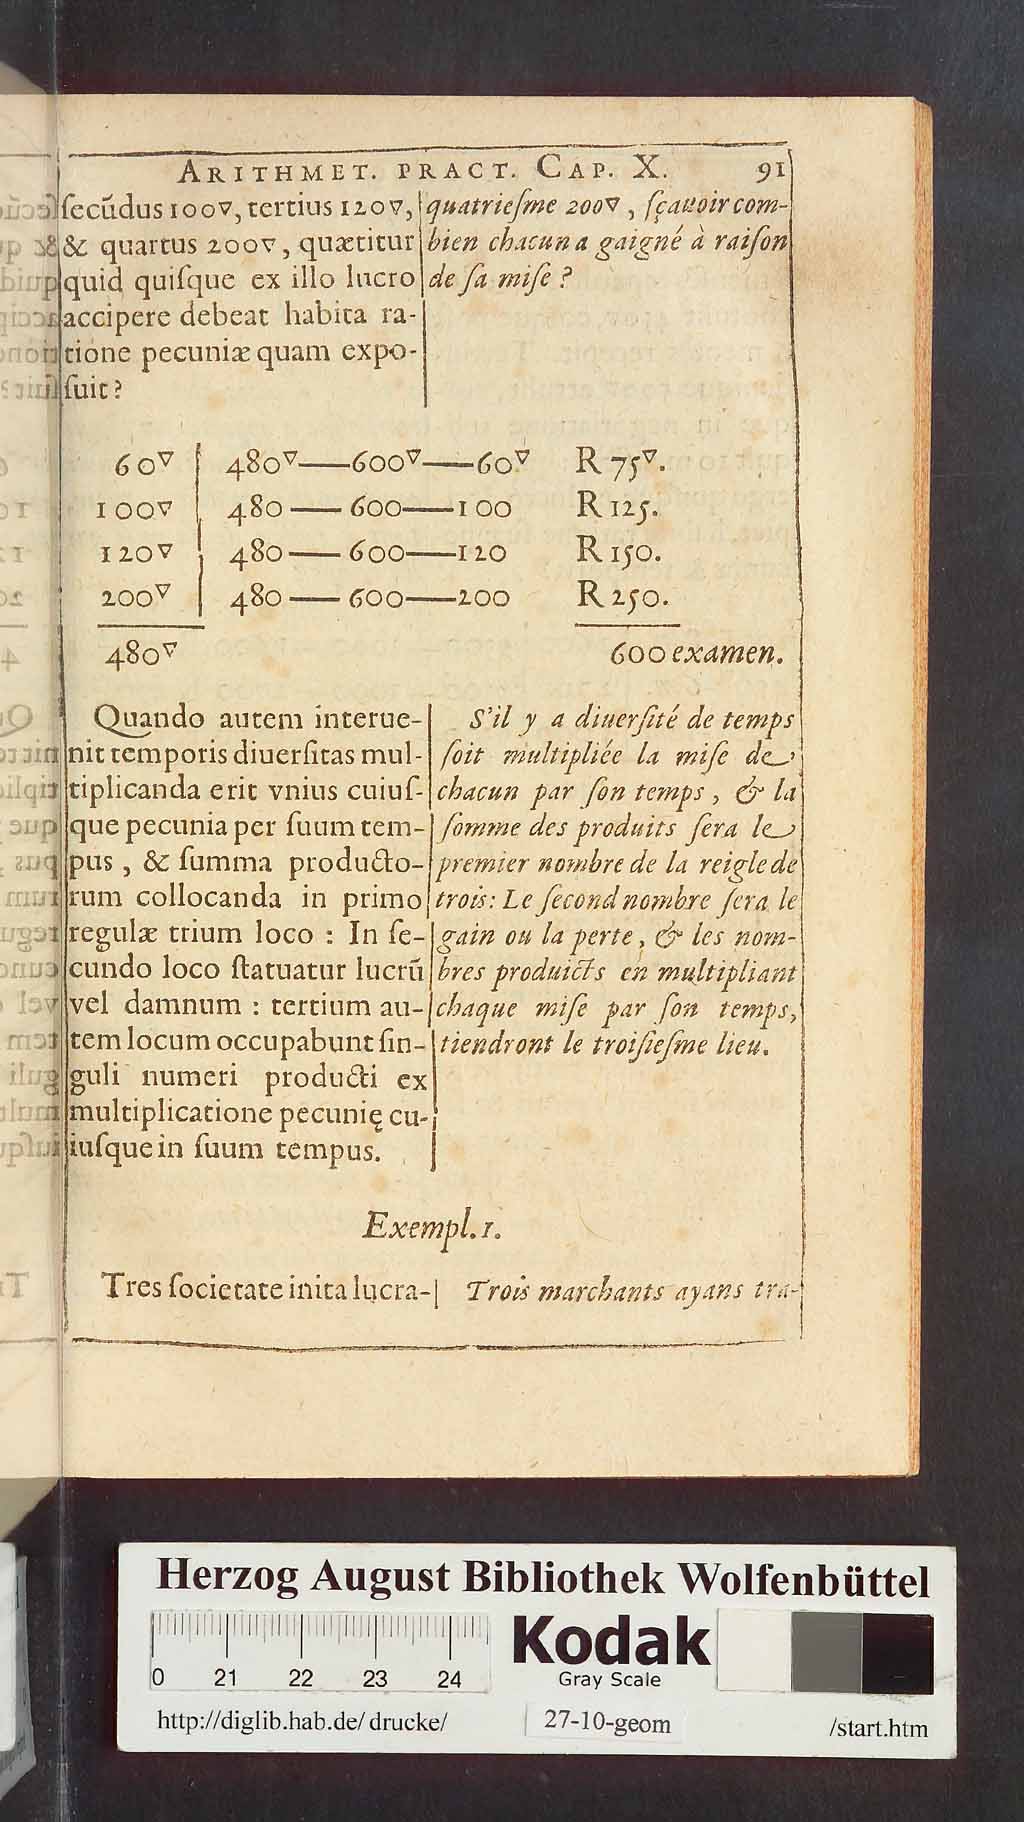 ARITHMET. PRACT. CAP. X. 91
ſecũdus 100▽, tertius 120▽,
& quartus 200▽, quætitur
quid quiſque ex illo lucro
accipere debeat habita ra-
tione pecuniæ quam expo-
ſuit?
quatrieſme 200▽, ſçauoir com-
bien chacun a gaigné à raiſon
de ſa miſe?
60▽ | 480▽—600▽—60▽ R 75▽.
100▽ | 480—600—100 R 125.
120▽ | 480—600—120 R 150.
200▽ | 480—600—200 R 250.
480▽ 600 examen.
Quando autem interue-
nit temporis diuerſitas mul-
tiplicanda erit vnius cuiuſ-
que pecunia per ſuum tem-
pus, & ſumma producto-
rum collocanda in primo
regulæ trium loco: In ſe-
cundo loco ſtatuatur lucrũ
vel damnum: tertium au-
tem locum occupabunt ſin-
guli numeri producti ex
multiplicatione pecunię cu-
iuſque in ſuum tempus.
S'il y a diuerſité de temps
ſoit multipliée la miſe de
chacun par ſon temps, & la
ſomme des produits ſera le
premier nombre de la reigle de
trois: Le ſecond nombre ſera le
gain ou la perte, & les nom-
bres produicts en multipliant
chaque miſe par ſon temps,
tiendront le troiſieſme lieu.
Exempl. 1.
Tres ſocietate inita lucra-
Trois marchants ayans tra-
Herzog August Bibliothek Wolfenbüttel
0 21 22 23 24
Kodak
Gray Scale
http://diglib.hab.de/drucke/ 27-10-geom /start.htm